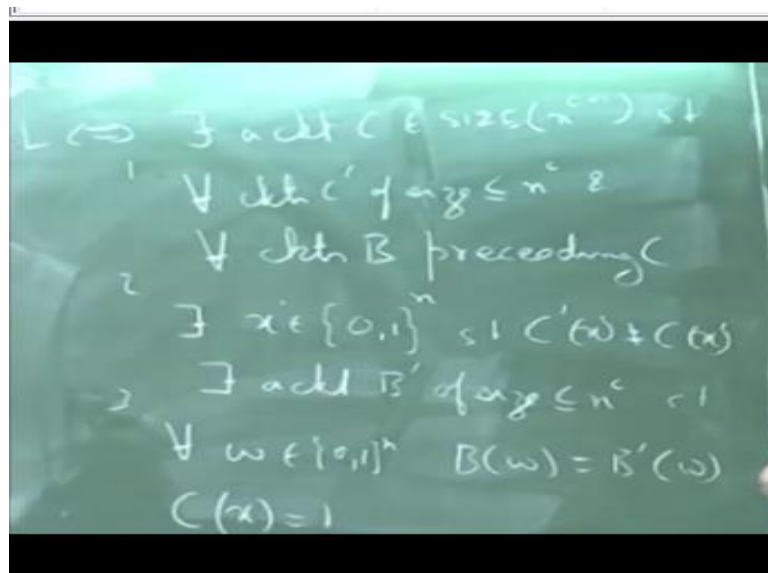 L ⇔ ∃ a ckt C ∈ SIZE(n^{c+1}) st
1 ∀ ckts C' of size ≤ n^c &
∀ ckts B preceeding C
2 ∃ x ∈ {0,1}^n st C'(x) ≠ C(x)
∃ a ckt B' of size ≤ n^c st
3 ∀ w ∈ {0,1}^n B(w) = B'(w)
C(x) = 1